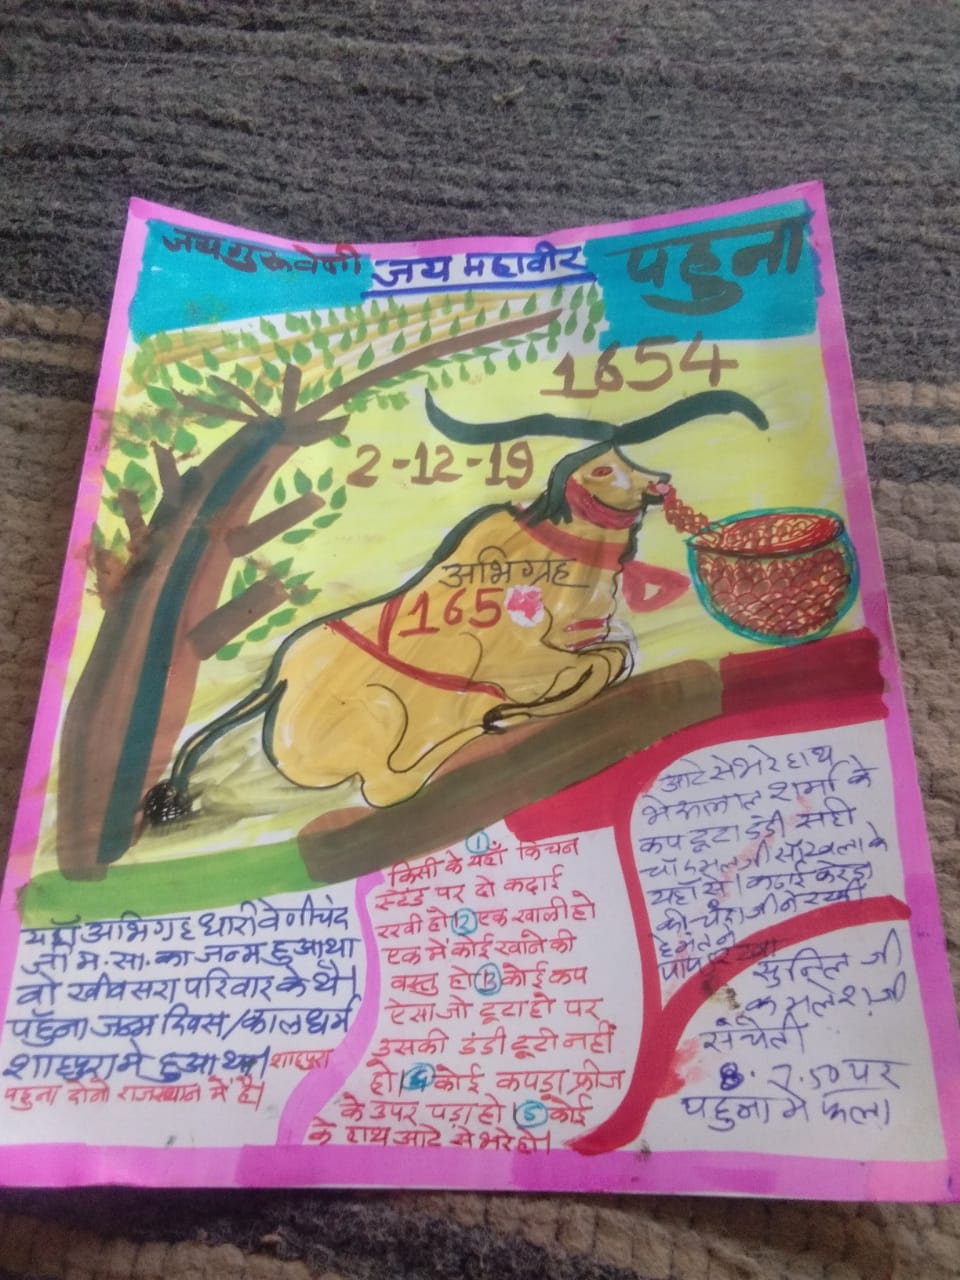 जय गुरू वेणी
जय महावीर
पहुना
1654
2-12-19
अभिग्रह
165
यहाँ अभिग्रहधारी वेणीचंद
जी म.सा. का जन्म हुआ था
वो खीवसरा परिवार के थे।
पहुँना जन्म दिवस/कालधर्म
शाहपुरा मे हुआ था। शाहपुरा
पहुना दोनो राजस्थान में है।
1
किसी के यहाँ किचन
स्टेंड पर दो कढाई
रखी हो 2 एक खाली हो
एक में कोई खाने की
वस्तु हो 3 कोई कप
ऐसा जो टूटा हो पर
उसकी डंडी टूटी नहीं
हो। 4 कोई कपड़ा फ्रीज
के उपर पड़ा हो 5 कोई
के हाथ आटे से भरे हो।
आटे से भरे हाथ
भेरूलाल शर्मा के
कप टूटा डंडी सही
यहाँ से। कढाई
सुनिल जी
कमलेश जी
संचेती
8.7.50 पर
पहुना मे फला